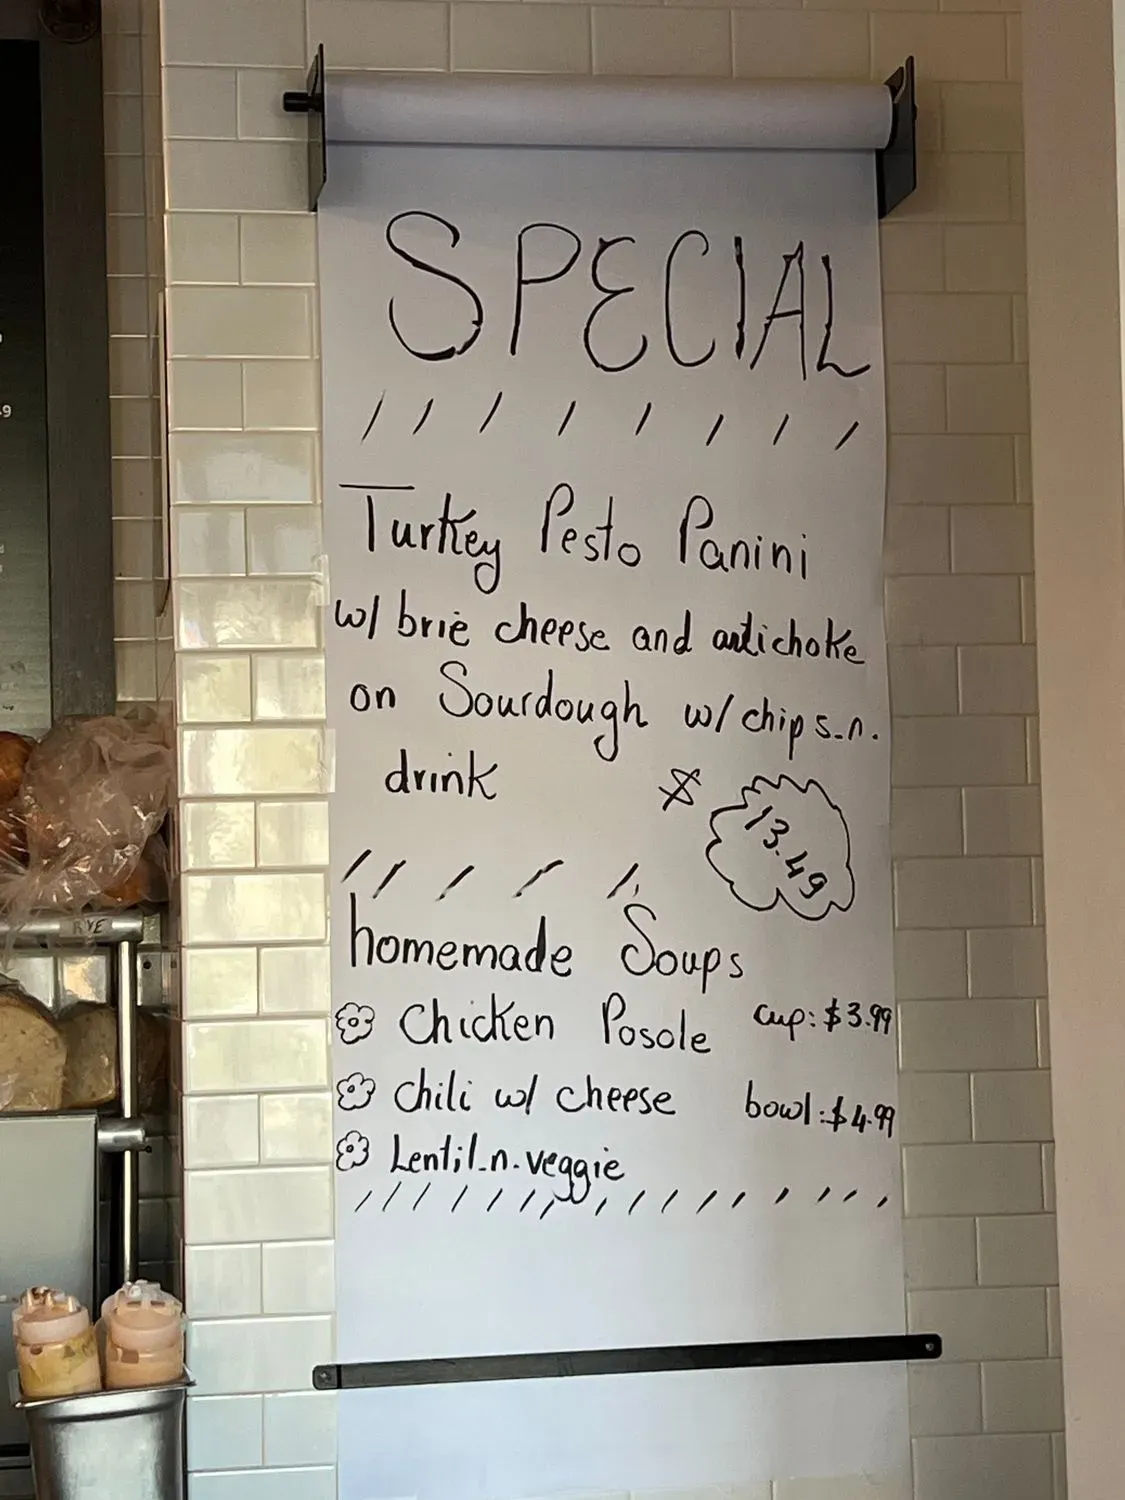 SPECIAL
Turkey Pesto Panini
w/ brie cheese and artichoke
on Sourdough w/ chips-n-
drink
$ 13.49
homemade Soups
Chicken Posole cup: $3.99
Chili w/ cheese bowl: $4.99
Lentil-n-veggie
RYE